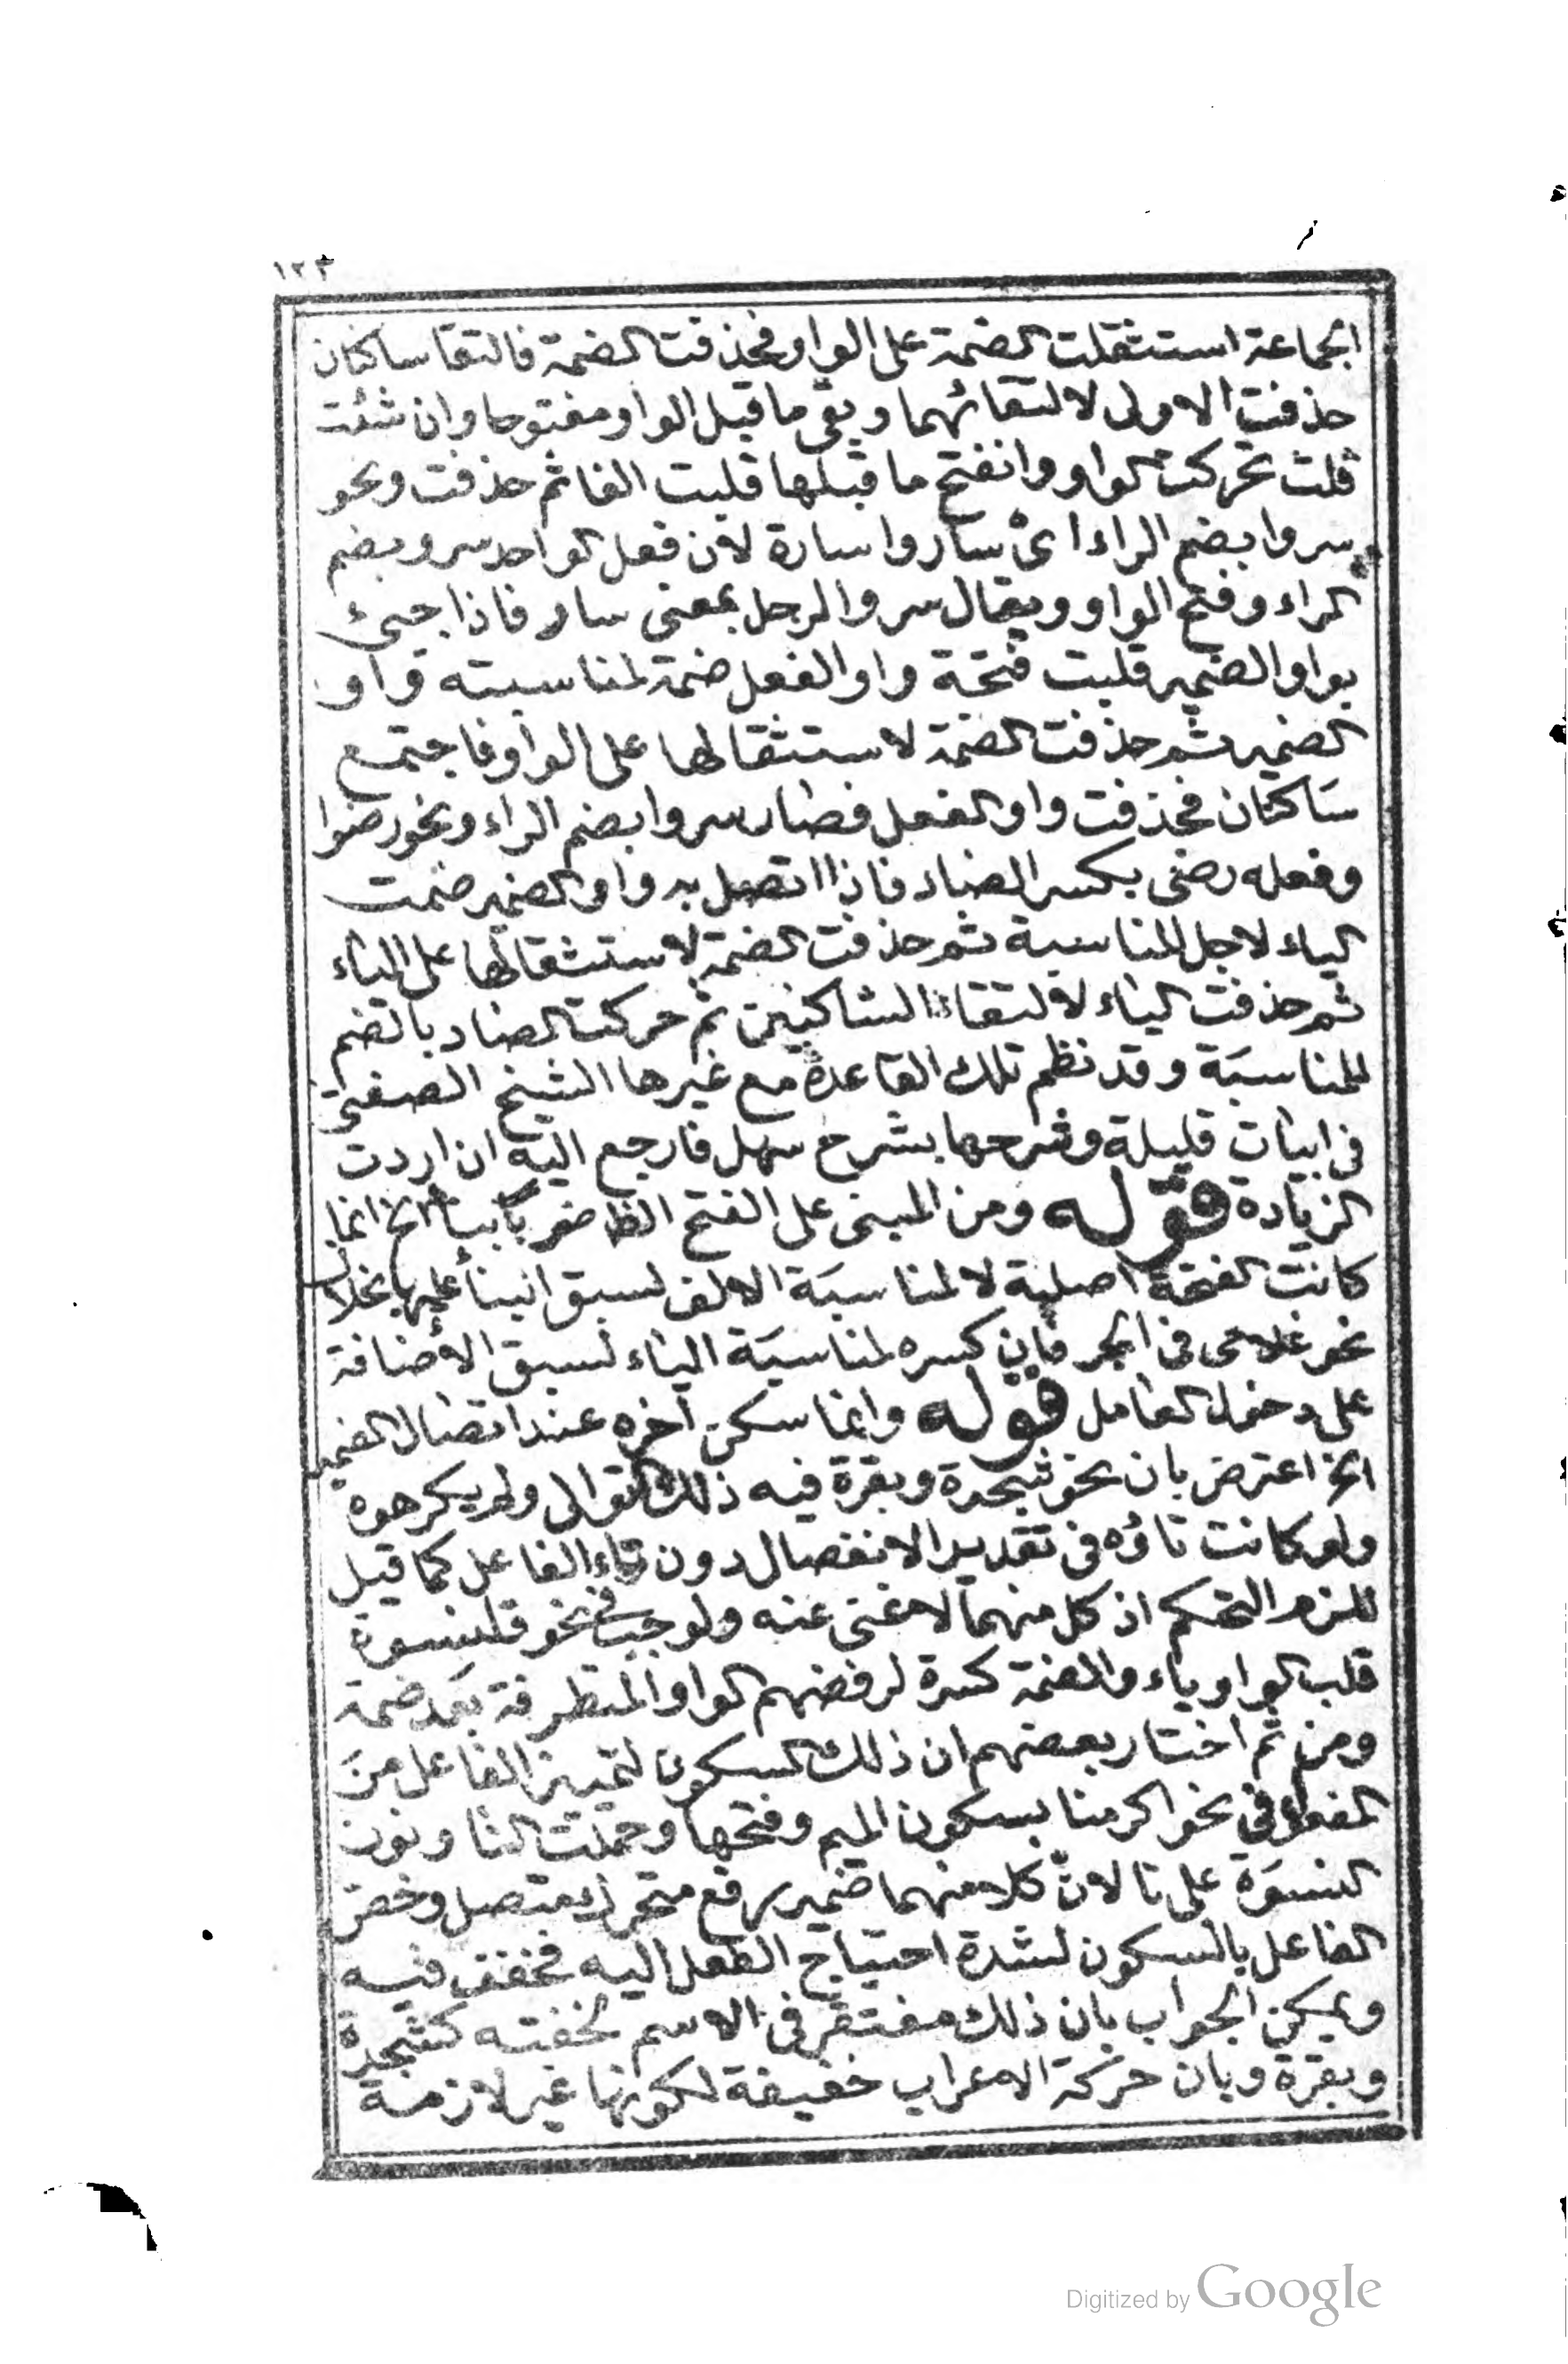 ١٢٣
الجماعة استثقلت الضمة على الواو فحذفت الضمة فالتقا ساكنان
حذفت الاولى لالتقائهما وبقى ما قبل الواو مفتوحا وان شئت
قلت تحركت الواو وانفتح ما قبلها قلبت الفا ثم حذفت ونحو
سروا بضم الراء اى ساروا سارة لان فعل الواحد سرو بضم
الراء وفتح الواو ويقال سرو الرجل بمعنى سار فاذا جئ
بواو الضمير قلبت فتحة واو الفعل ضمة لمناسبته واو
الضمير ثم حذفت الضمة لاستثقالها على الواو فاجتمع
ساكنان فحذفت واو الفعل فصار سروا بضم الراء ونحو رضوا
وفعله رضى بكسر الضاد فاذا اتصل به واو الضمير ضمت
الياء لاجل المناسبة ثم حذفت الضمة لاستثقالها على الياء
ثم حذفت الياء لالتقاء الساكنين ثم حركت الضاد بالضم
للمناسبة وقد نظم تلك القاعدة مع غيرها الشيخ الصفتى
فى ابيات قليلة وشرحها بشرح سهل فارجع اليه ان اردت
الزيادة قوله ومن المبنى على الفتح الخ انما
كانت الفتحة اصلية لا لمناسبة الالف لسبق البناء عليها بخلاف
نحو غلامى فى الجر فان كسره لمناسبة الياء لسبق الاضافة
على دخول العامل قوله وانما سكن آخره عند اتصال الضمير
الخ اعترض بان نحو شجرة وبقرة فيه ذلك التوالى ولم يكرهوه
ولو كانت تاؤه فى تقدير الانفصال دون تاء الفاعل كما قيل
للزم التحكم اذ كل منهما لا غنى عنه ولوجب فى نحو قلنسوة
قلب الواو ياء والضمة كسرة لرفضهم الواو المتطرفة بعد ضمة
ومن ثم اختار بعضهم ان ذلك السكون لتمييز الفاعل من
المفعول فى نحو اكرمنا بسكون الميم وفتحها وحملت التا ونون
النسوة على نا لان كلا منهما ضمير رفع متحرك متصل وخص
الفاعل بالسكون لشدة احتياج الفعل اليه فخفف فيه
ويمكن الجواب بان ذلك مغتفر فى الاسم لخفته كشجرة
وبقرة وبان حركة الاعراب خفيفة لكونها غير لازمة
Digitized by Google